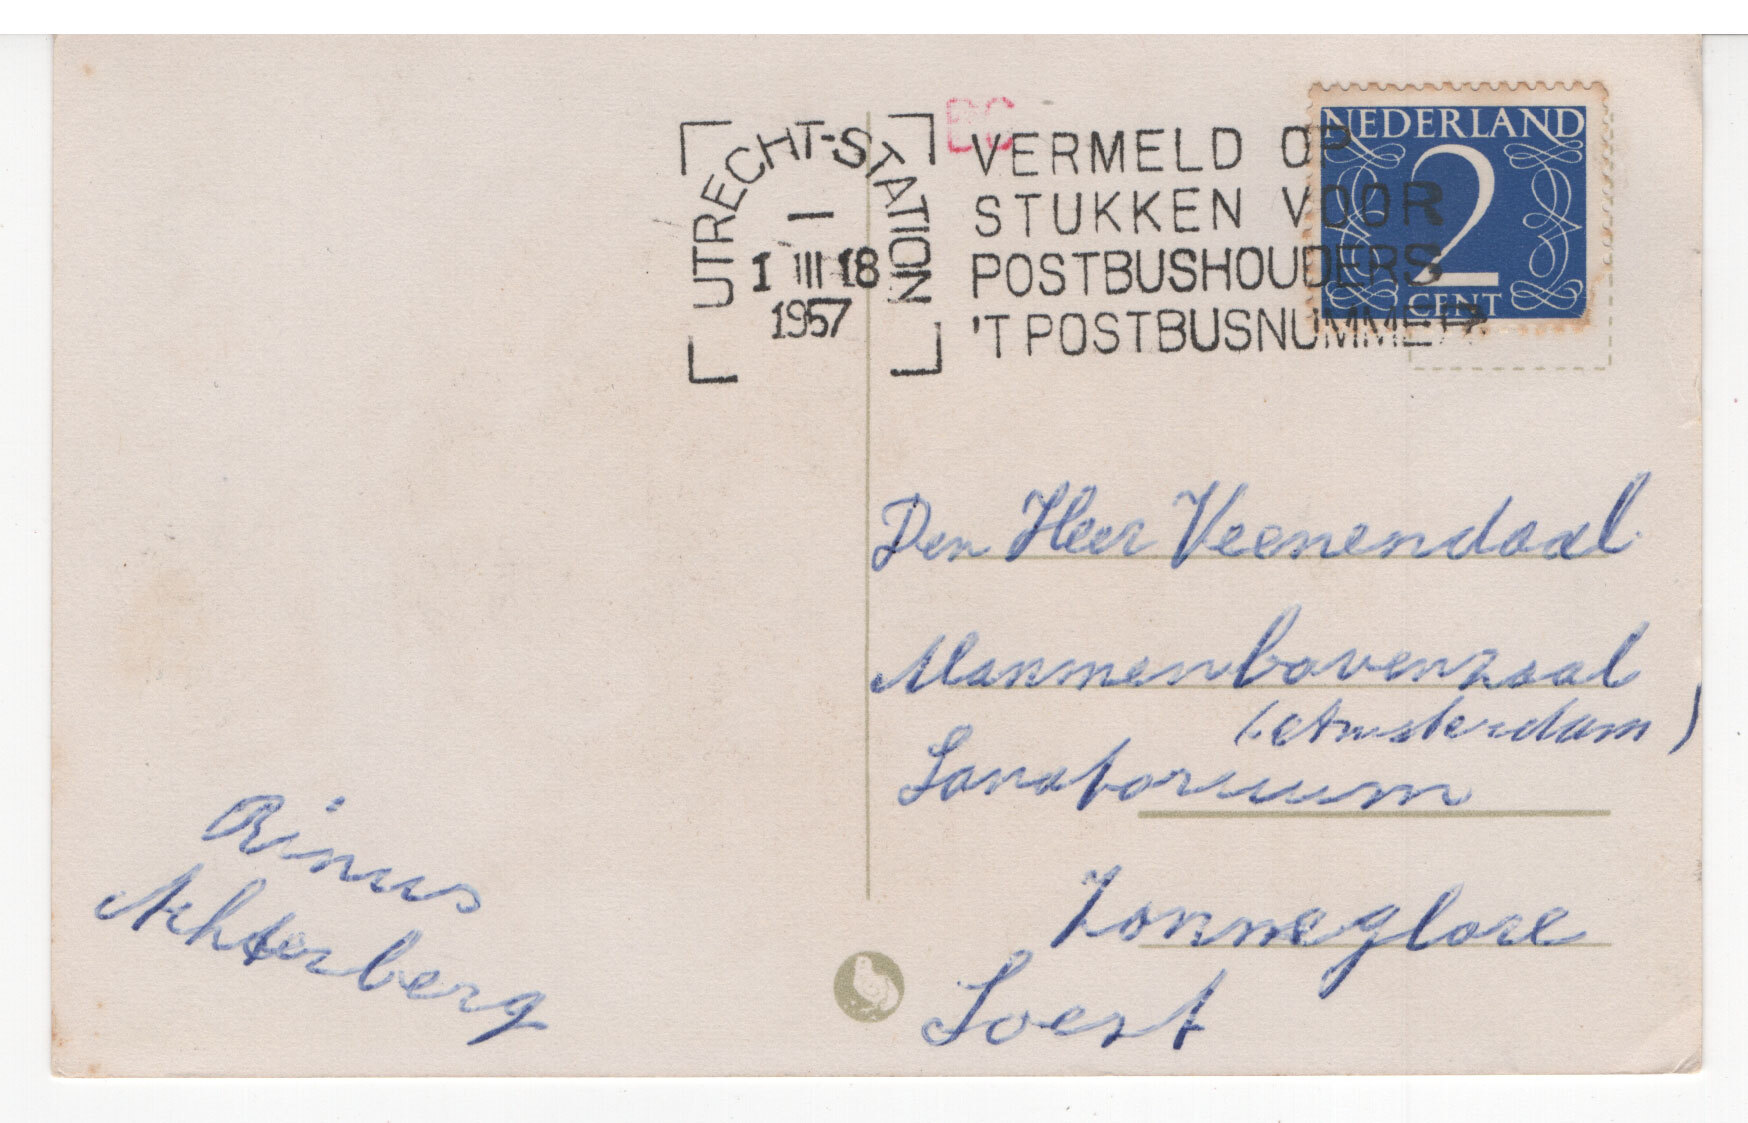 BC
UTRECHT-STATION
1 III 18
1957
VERMELD OP
STUKKEN VOOR
POSTBUSHOUDERS
'T POSTBUSNUMMER
NEDERLAND
2
CENT
Den Heer Veenendaal
Mannenbovenzaal
(Amsterdam)
Sanatorium
Zonneglore
Soest
Rinus
Achterberg